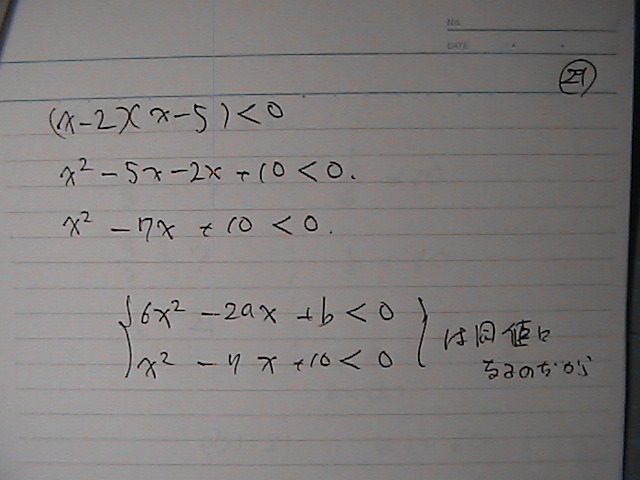 No.
DATE
㉙
(x-2)(x-5)<0
x²-5x-2x+10<0.
x²-7x+10<0.
6x²-2ax+b<0
x²-7x+10<0
は同値に
なるのだから